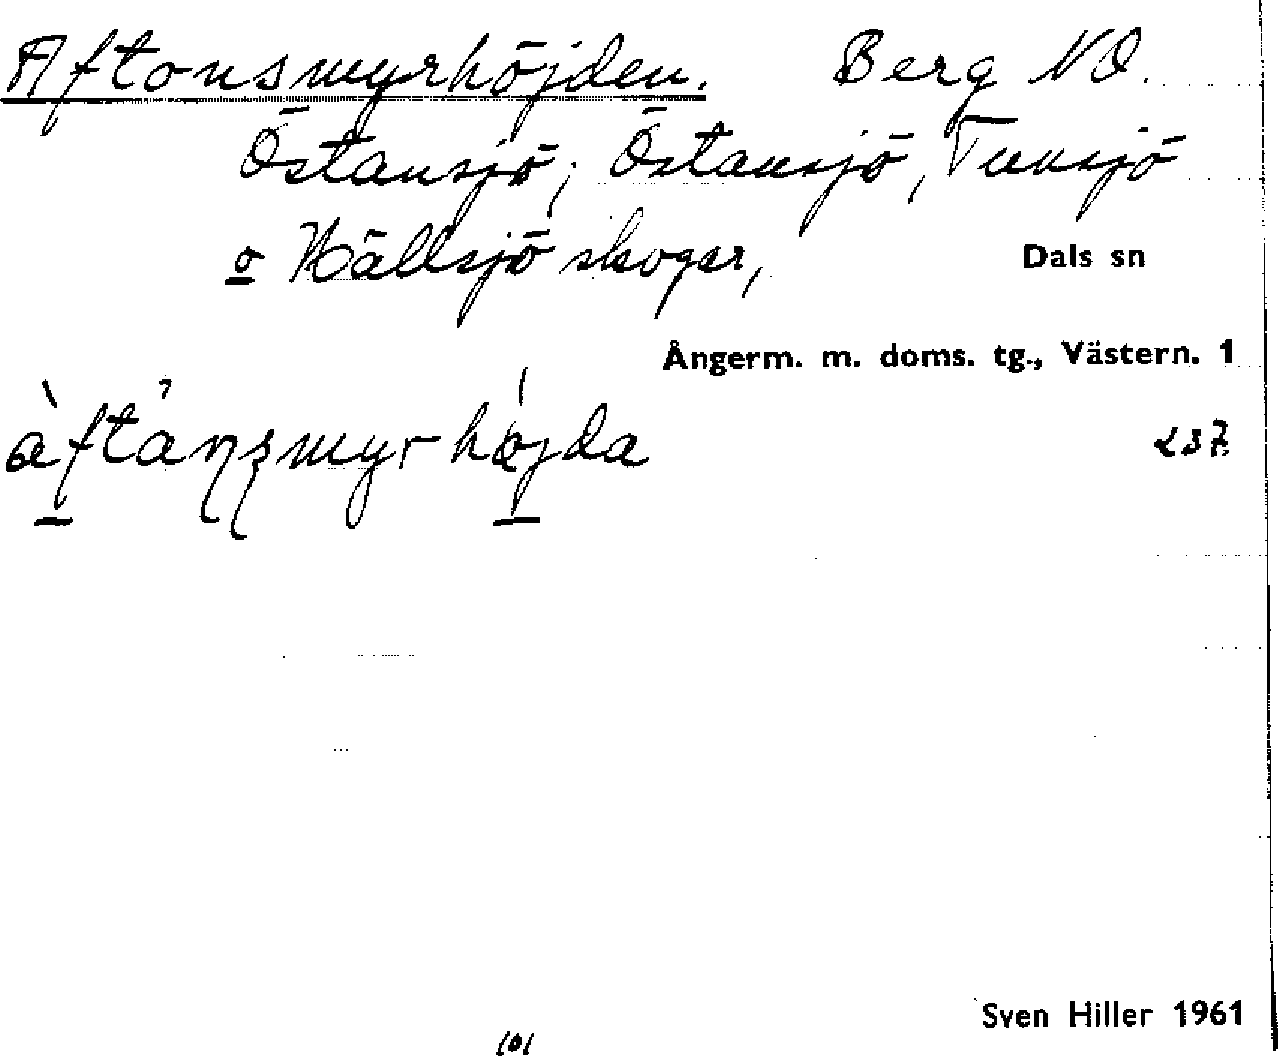 Aftonsmyrhöjden. Berg NO.
Östansjö; Östansjö, Tunsjö
o Hällsjö skogar, Dals sn
Ångerm. m. doms. tg., Västern. 1
àftánsmyrhø̀jda 237.
Sven Hiller 1961
101